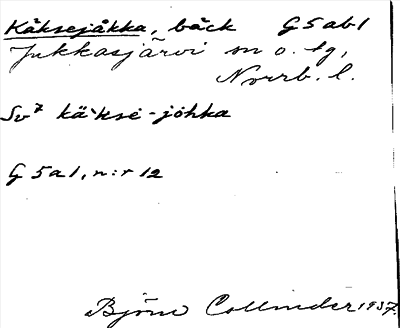 Käksejåkka, bäck G5ab1
Jukkasjärvi sn o. tg,
Norrb. l.
Sv⁷ kä`kse-johka
G 5a1, n:r 12
Björn Collinder 1937.